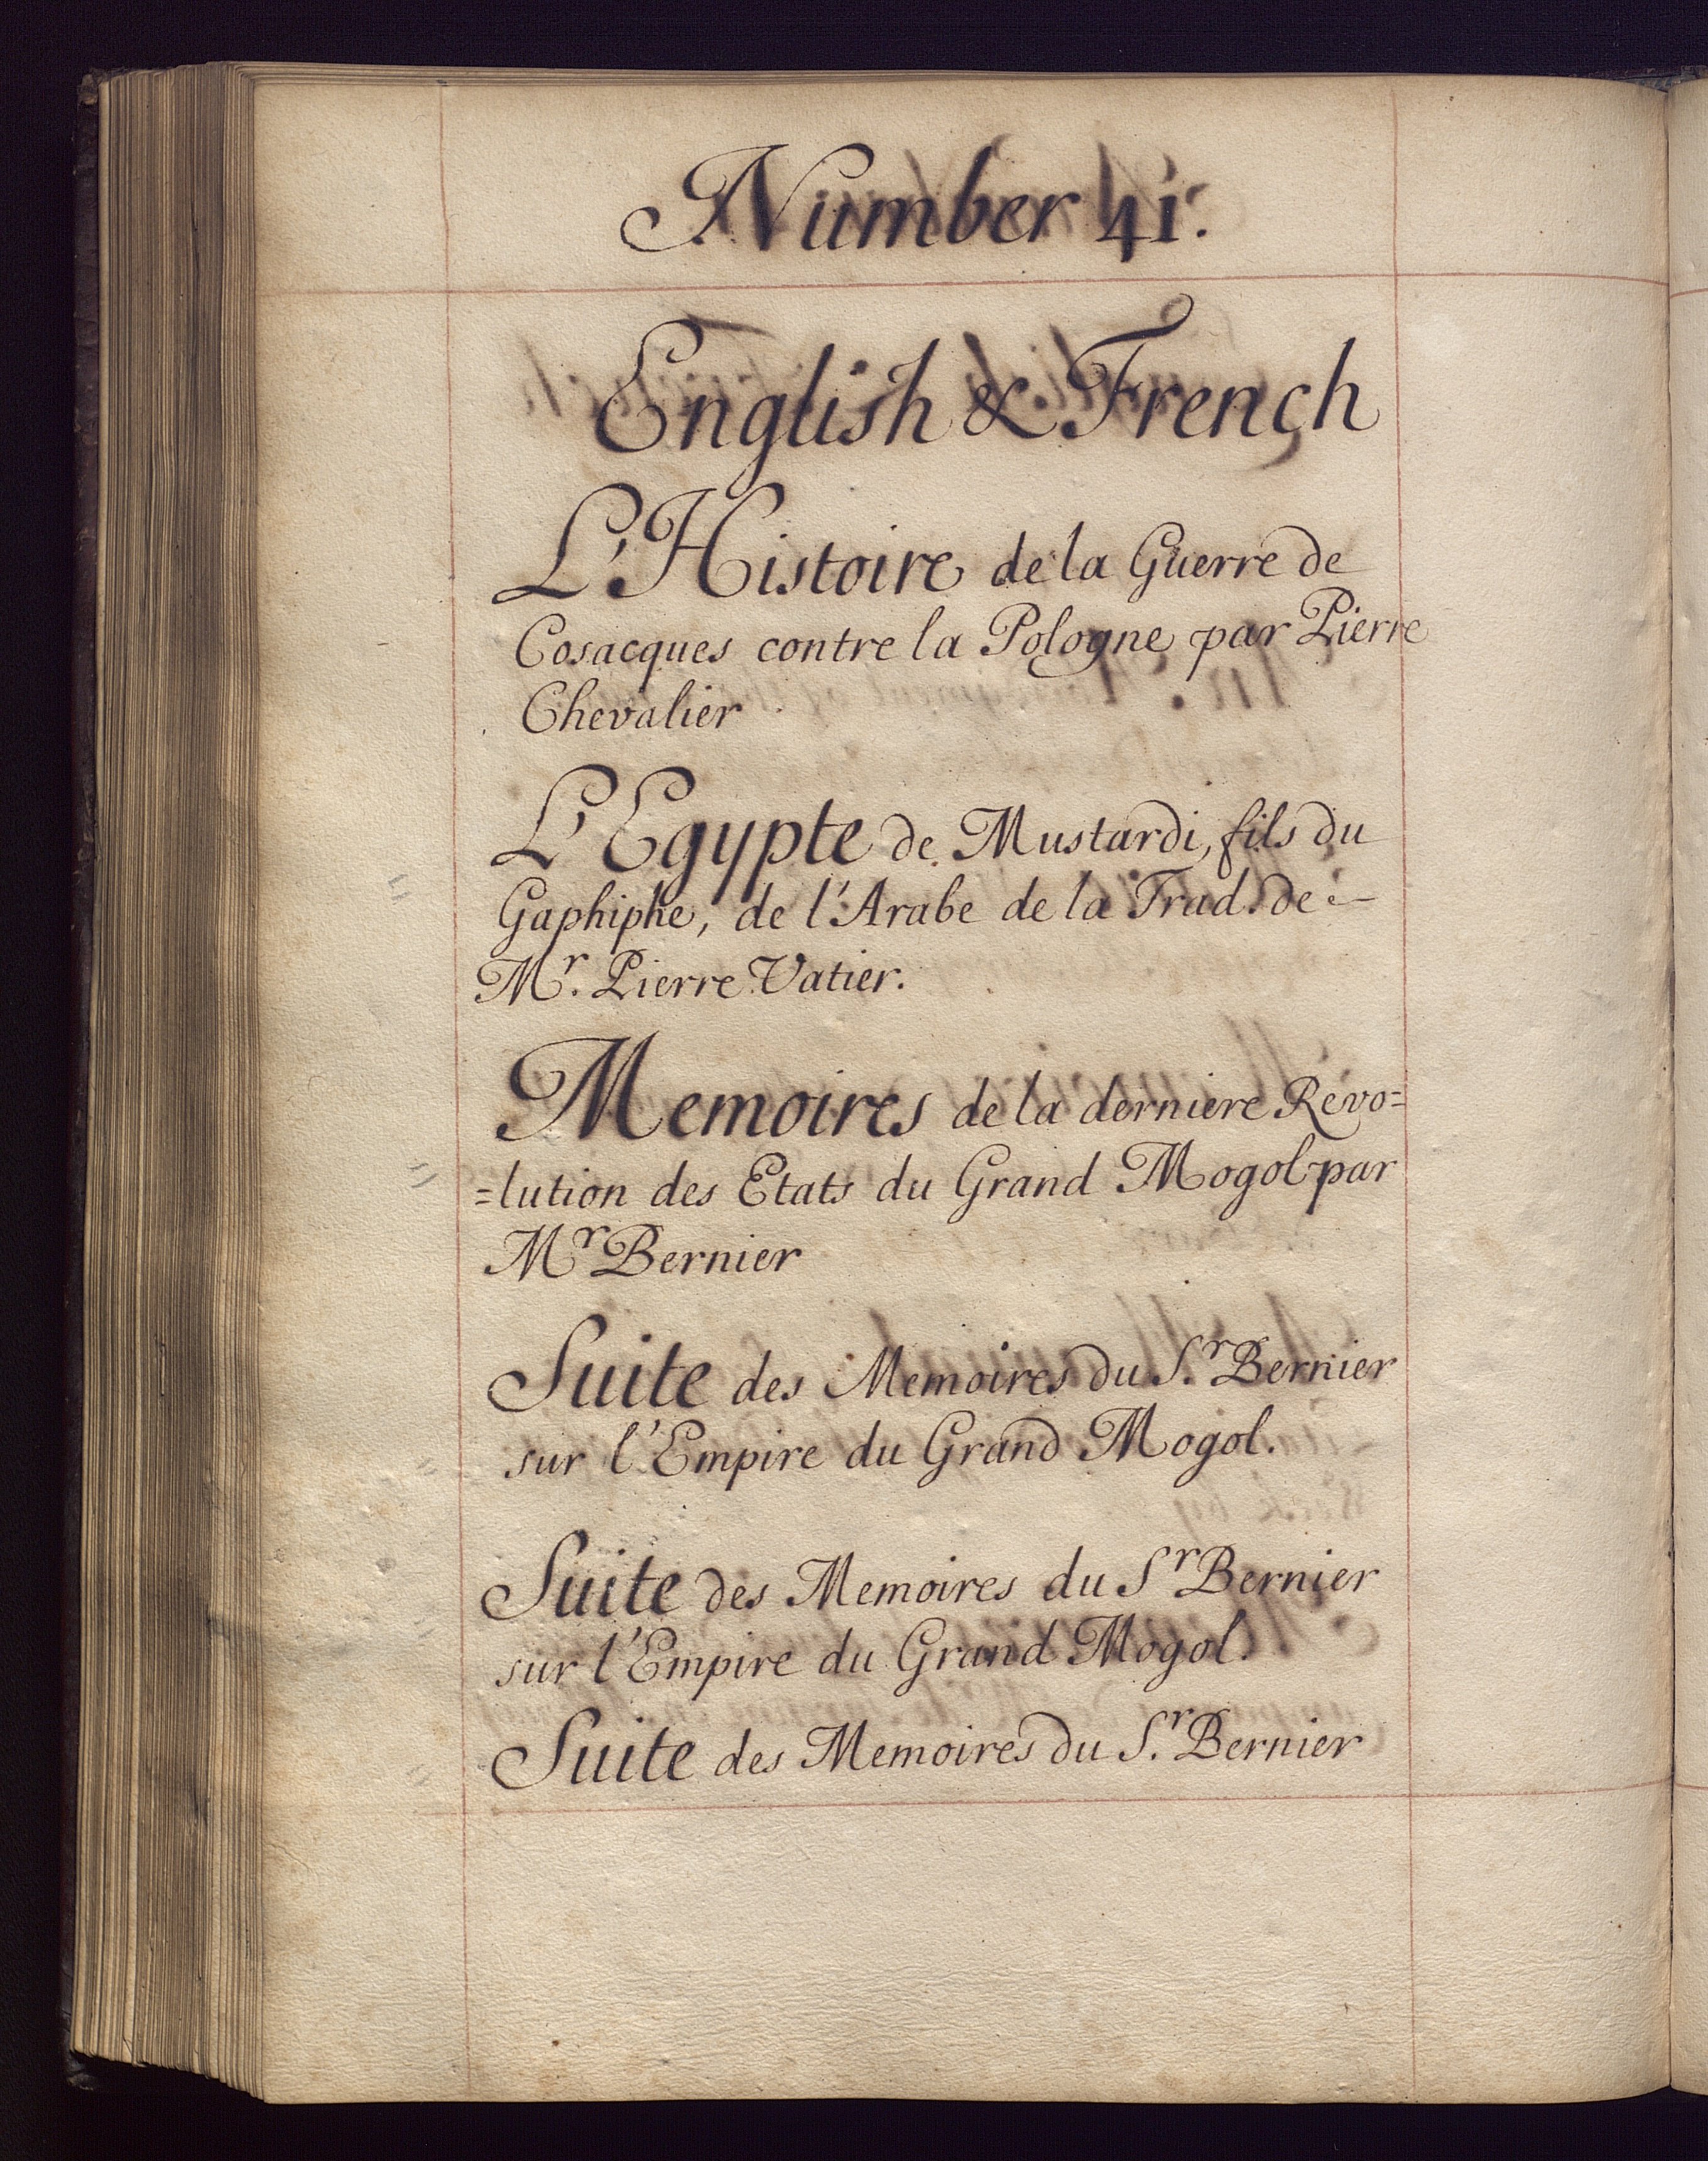 Number 41.
English & French
L'Histoire de la Guerre de
Cosacques contre la Pologne par Pierre
Chevalier
L'Egypte de Mustardi, fils du
Gaphiphe, de l'Arabe de la Trad. de
Mr. Pierre Vatier.
Memoires de la derniere Revo=
=lution des Etats du Grand Mogol par
Mr Bernier
Suite des Memoires du Sr. Bernier
sur l'Empire du Grand Mogol.
Suite des Memoires du Sr Bernier
sur l'Empire du Grand Mogol.
Suite des Memoires du Sr. Bernier